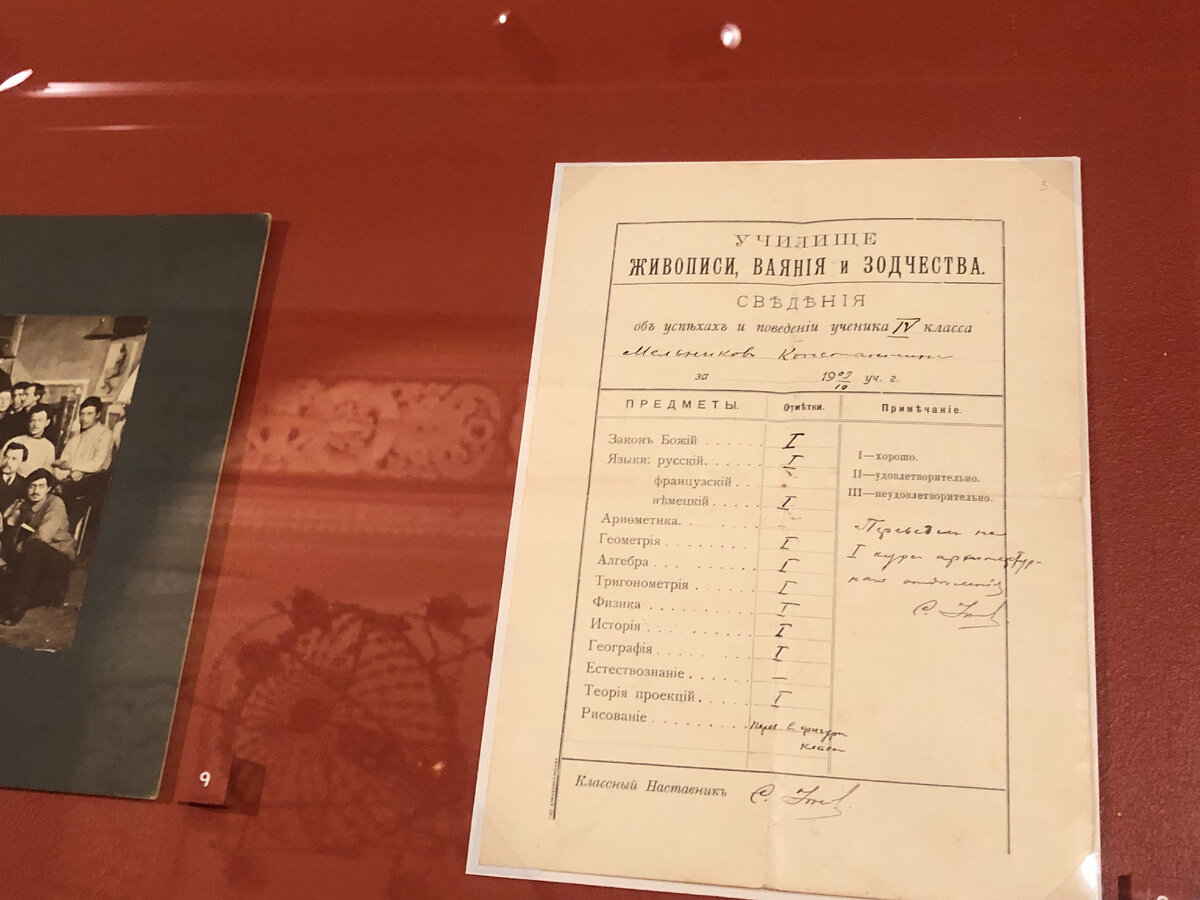 3
УЧИЛИЩЕ
ЖИВОПИСИ, ВАЯНІЯ и ЗОДЧЕСТВА.
СВѢДѢНІЯ
объ успѣхахъ и поведеніи ученика IV класса
Мельниковъ Константинъ
за 1909/10 уч. г.
ПРЕДМЕТЫ. Отмѣтки. Примѣчаніе.
Законъ Божій . . . . . . I
Языки: русскій. . . . . . I I—хорошо.
французскій . . II—удовлетворительно.
нѣмецкій . . . . . I III—неудовлетворительно.
Ариѳметика. . . . . . . –
Геометрія . . . . . . . . I
Алгебра . . . . . . . . . I
Тригонометрія . . . . . I
Физика . . . . . . . . . I
Исторія . . . . . . . . . I
Географія . . . . . . . . I
Естествознаніе . . . . . –
Теорія проекцій . . . . I
Рисованіе . . . . . . . . перев. в фигурн
класс
Переведенъ на
I курсъ архитектур-
наго отдѣленія
Классный Наставникъ
9